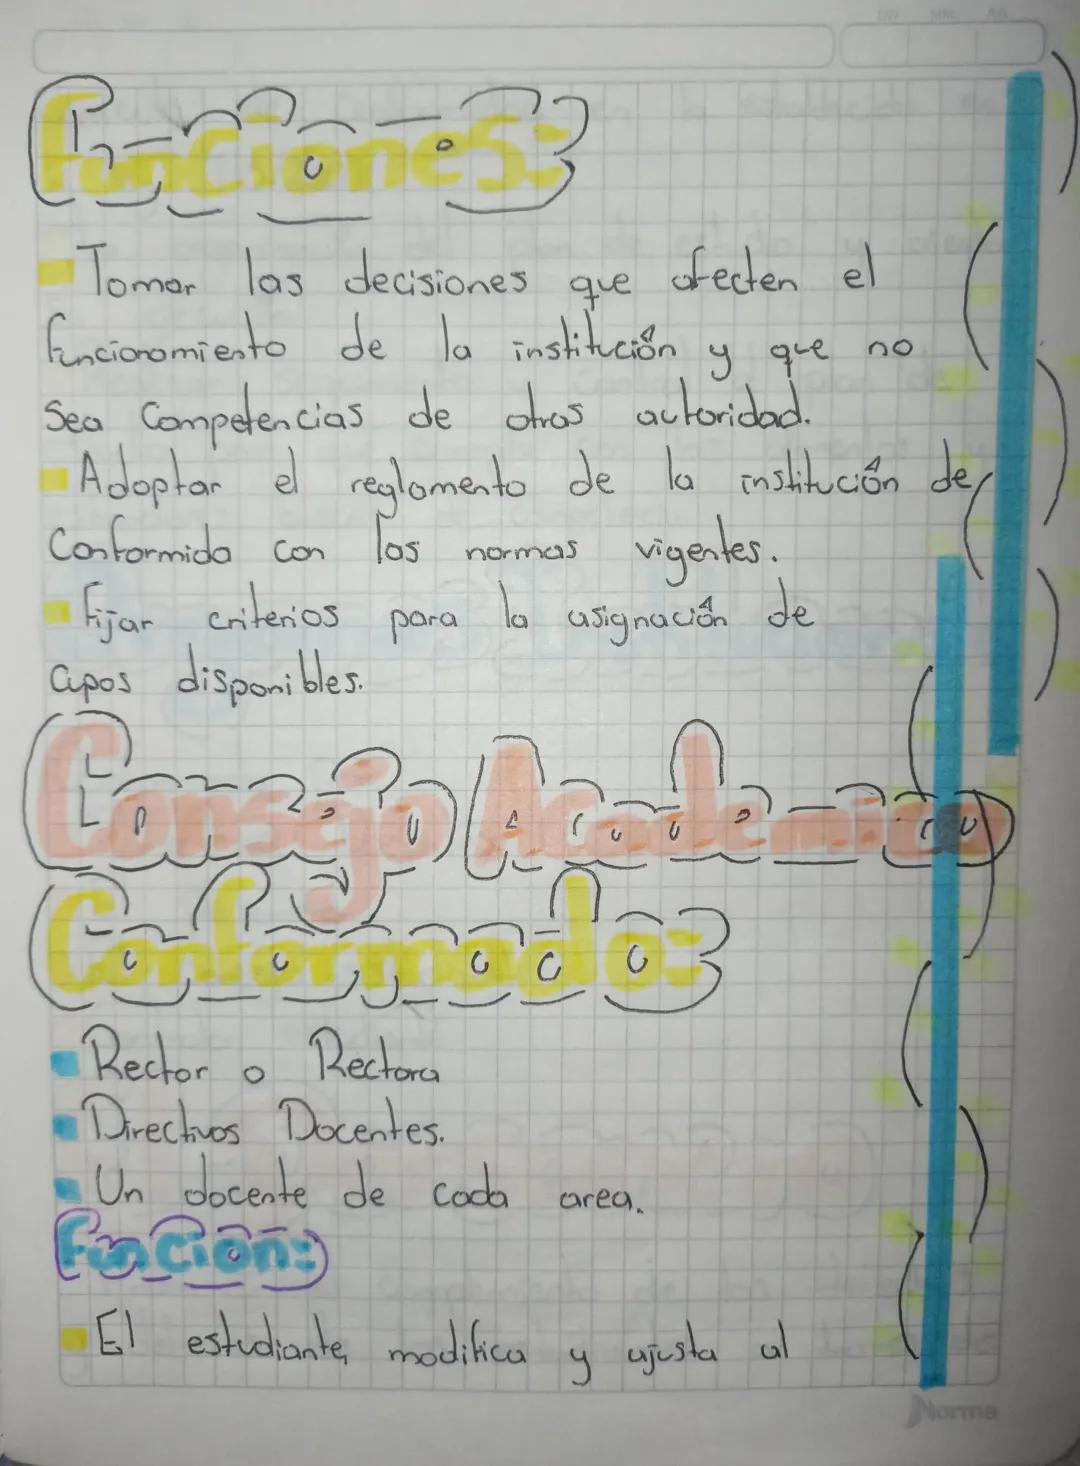 Funciones:
Tomar las decisiones que afecten el
funcionamiento de la institución y que no
sea competencias de otras autoridad.
Adoptar el reglamento de la institución de
Conformida con las normas vigentes.
Fijar criterios para la asignación de
cupos disponibles.
Consejo Academico
Conformado:
Rector o Rectora
Directivos Docentes.
Un docente de cada area.
Función:
El estudiante, modifica y ajusta al
Norma